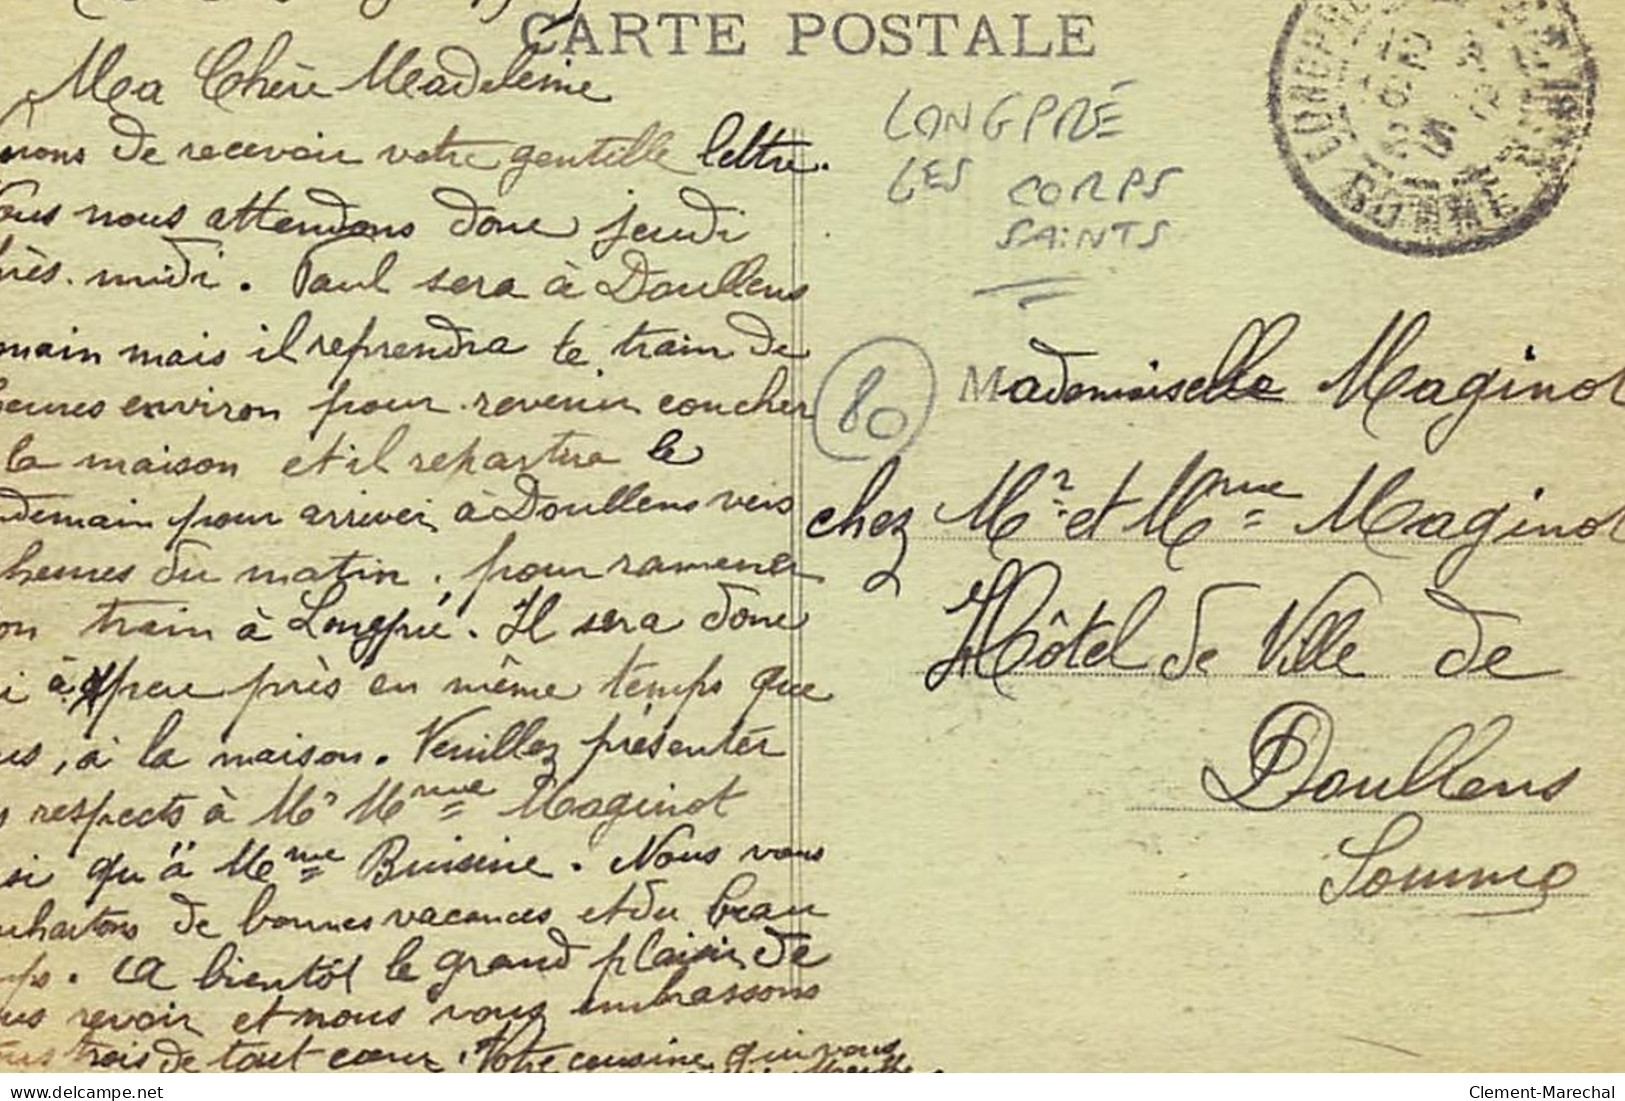 CARTE POSTALE
Ma Chère Madeleine
de recevoir votre gentille lettre.
nous attendons donc jeudi
midi. Paul sera à Doullens
mais il reprendra le train de
environ pour revenir coucher
la maison et il repartira le
demain pour arriver à Doullens vers
heures du matin, pour ramener
train à Longpré. Il sera donc
à peu près en même temps que
, à la maison. Veuillez présenter
respects à Mr Mme Maginot
qu'à Mme Buisine. Nous vous
de bonnes vacances et du beau
. A bientôt le grand plaisir de
revoir et nous vous embrassons
trois de tout cœur. Votre cousine qui vous
LONGPRÉ
LES CORPS
SAINTS
80
LONGPRÉ
SOMME
Mademoiselle Maginot
chez Mr et Mme Maginot
Hôtel de Ville de
Doullens
Somme
delcampe.net
Clement-Marechal